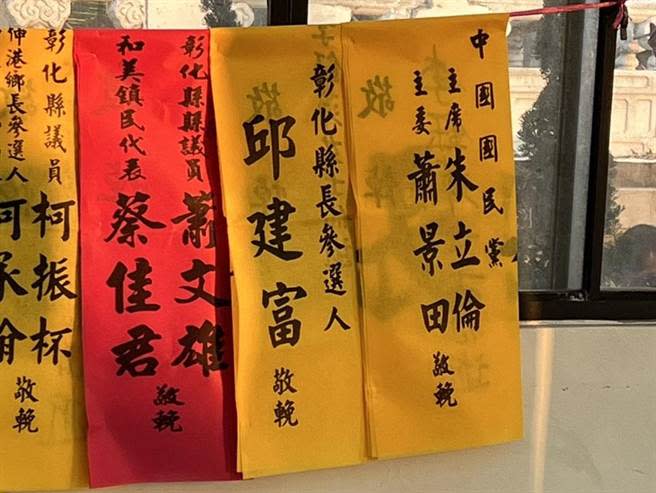 中國國民黨
主席 朱立倫
主委 蕭景田
敬輓
彰化縣長參選人
邱建富 敬輓
彰化縣縣議員 蕭文雄
和美鎮民代表 蔡佳君
敬輓
彰化縣議員 柯振杯
伸港鄉長參選人
敬輓